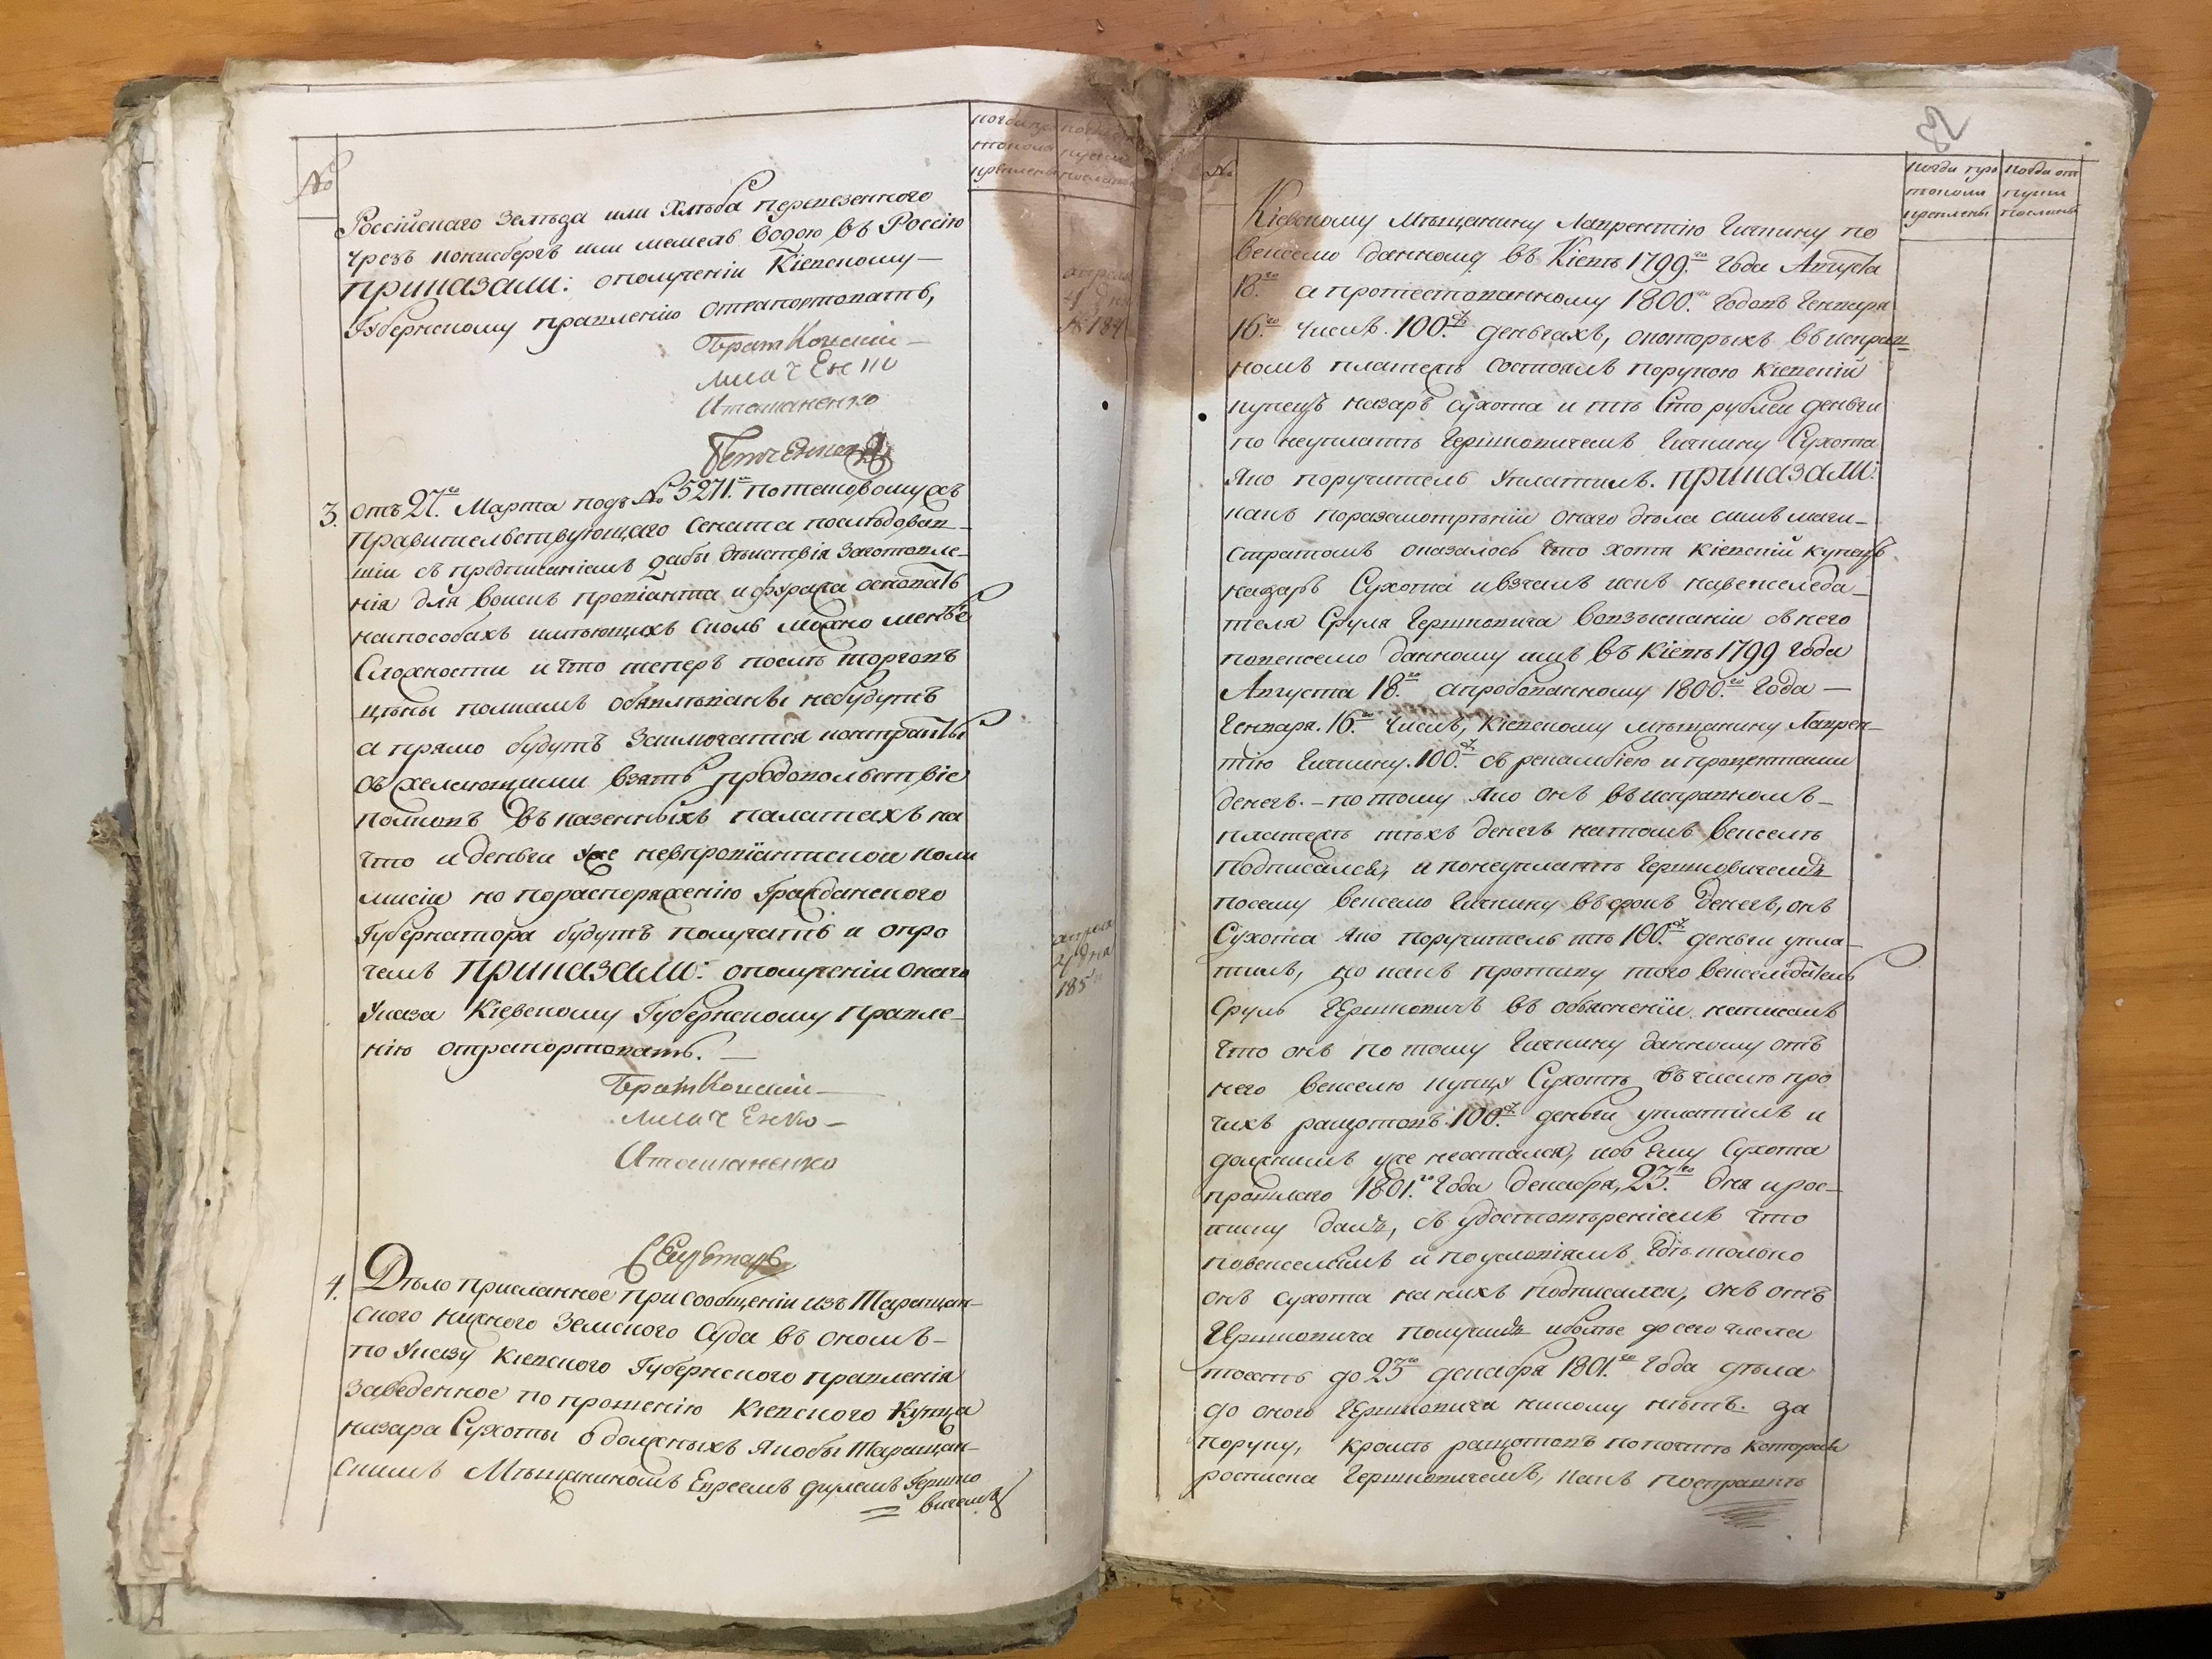 №
Россійскаго Зелъда или Хлѣба перевезенного
чрезъ конисбергъ или мемель водою въ Россію
приказали: ополученіи Кіевскому
Губернскому правленію отрапортовать,
3. отъ 27го Марта подъ № 5271м потаковомужъ
Правительствующаго Сената последовав
шіи съ предписаніемъ дабы дѣйствія заготовле
нія для воискъ провіанта и фуража основать
наспособахъ имѣющихъ сколь можно менѣе
Сложности и что теперъ послѣ торговъ
цѣны полкамъ объявлѣваны небудутъ
а прямо будутъ Заключатся контракты
съ желающими взять продовольствіе
полковъ въ казенныхъ палатахъ на
что и деньги уже невпровіантской коми
мисіи но пораспоряженію Гражданского
Губернатора будутъ получать и опро
чемъ приказали: ополученіи онаго
Указа Кіевскому Губернскому Правле
нію отрапортовать.
Секретарь
4. Дѣло присланное при сообщеніи изъ Таращан
ского нижного Земского Суда въ ономъ
по Указу Кіевского Губернского правленія
заведенное по прошенію Кіевского Купца
назара Сухоты о должныхъ якобы Таращан
скимъ Мѣщаниномъ Евреемъ Срулемъ Гершко
вичемъ
№
когда про
токолы
крѣплены
когда от
пуски
посланы
Кіевскому Мѣщанину Лаврентію Гичкину по
векселю данному въ Кіевѣ 1799го года Августа
18го а протестованному 1800го годовъ Генваря
16го числъ 100 р. деньгахъ, окоторыхъ въ исправ
номъ платежѣ состоялъ порукою кіевскій
купецъ назаръ сухота и тѣ Сто рублей деньги
по неуплатѣ Гершковичемъ Гичкину Сухота
яко поручитель Уплатилъ. приказали:
какъ поразсмотрѣніи онаго дѣла симъ маги
стратомъ оказалось что хотя кіевскій купецъ
назаръ Сухота и взчалъ искъ навекселеда
теля Сруля Гершковича во взысканіи съ него
повекселю данному имъ въ Кіевѣ 1799 года
Августа 18го апробованному 1800го года
Генваря 16го числъ, Кіевскому мѣщанину Лаврен
тію Гичкину 100 р. съ рекамбіею и процентами
денегъ. - потому яко онъ въ исправномъ
платежѣ тѣхъ денегъ натомъ векселѣ
подписался, а понеуплатѣ Гершковичемъ
посему векселю Гичкину въ срокъ денегъ, онъ
Сухота яко поручитель тѣ 100 р. деньги упла
тилъ, но какъ противу того векселедатель
Сруль Гершковичъ въ объясненіи написалъ
что онъ по тому Гичкину данному отъ
него векселю купцу Сухотѣ въ числѣ про
чихъ ращотовъ 100 р. деньги уплатилъ и
должнимъ уже неостался, ибо ему Сухота
прошлаго 1801го года декабря, 23го дня и рос
писку далъ, съ удостовѣреніемъ что
повекселямъ и поусловіямъ гдѣ только
онъ сухота на нихъ подписался, онъ отъ
Гершковича получилъ иболѣе до сего числа
тоестъ до 23го декабря 1801го года дѣла
до оного Гершковича никому нѣтъ. за
поруку, кромѣ ращотовъ
росписка Гершковичемъ, какъ